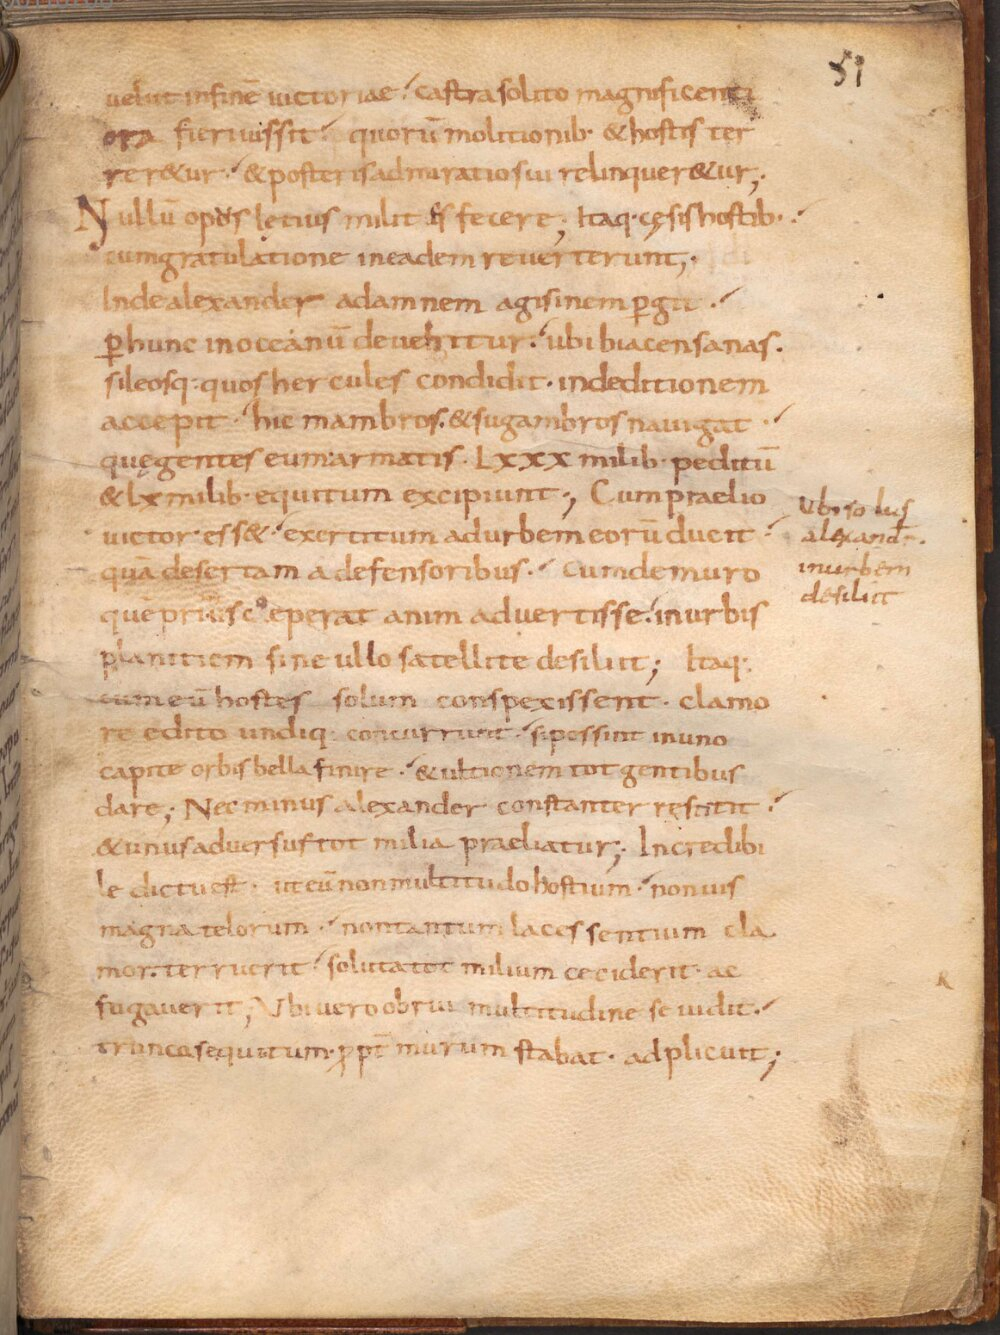 51
uelut infinē uictoriae· castra solito magnificenti
ora fieri iussit· quorū molitionib· & hostis ter
rer&ur·· & posteris admiratio sui relinquer&ur;·
Nullū opus lętius milites fecere; Itaq· cęsis hostib··
cum gratulatione in eadem reuerterunt;·
Inde alexander adamnem agisinem ꝑgit·
ꝑ hunc in oceanū deuehitur· ubi biacensanas·
sileosq: quos hercules condidit· in deditionem
accepit· hic mambros· & sugambros nauigat·
quę gentes eum armatis· Lxxx milib· peditū
& lx milib· equitum excipiunt; Cum praelio
uictor ess&· exercitum ad urbem eorū ducit·
quā desertam a defensoribus· Cum de muro
quē prius coeperat animaduertisse· in urbis
planitiem sine ullo satellite desiliit; Itaq:
cum eū hostes solum conspexissent· clamo
re edito undiq: concurrunt· si possint in uno
capite orbis bella finire· & ultionem tot gentibus
dare; Nec minus alexander constanter restitit·
& unus aduersus tot milia praeliatur; Incredibi
le dictu est· ut eū non multitudo hostium· non uis
magna telorum· non tantum lacessentium cla
mor· terruerit· solus tot milium ceciderit· ac
fugauerit; Vbi uero obrui multitudine se uidit·
trunco se qui tum· ꝓpt murum stabat· adplicuit;
Ubi solus
alexand·
in urbem
desiliit
R